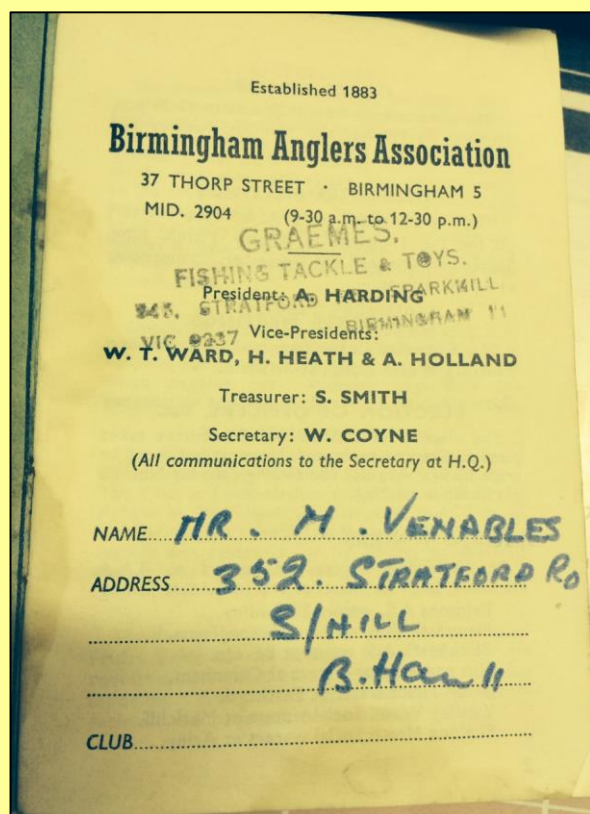 Established 1883
Birmingham Anglers Association
37 THORP STREET · BIRMINGHAM 5
MID. 2904 (9-30 a.m. to 12-30 p.m.)
GRAEMES.
FISHING TACKLE & TOYS.
President: A. HARDING
STRATFORD SPARKHILL
Vice-Presidents:
VIC BIRMINGHAM 11
W. T. WARD, H. HEATH & A. HOLLAND
Treasurer: S. SMITH
Secretary: W. COYNE
(All communications to the Secretary at H.Q.)
NAME MR. M. VENABLES
ADDRESS 352. STRATFORD RD
S/HILL
B.Ham 11
CLUB